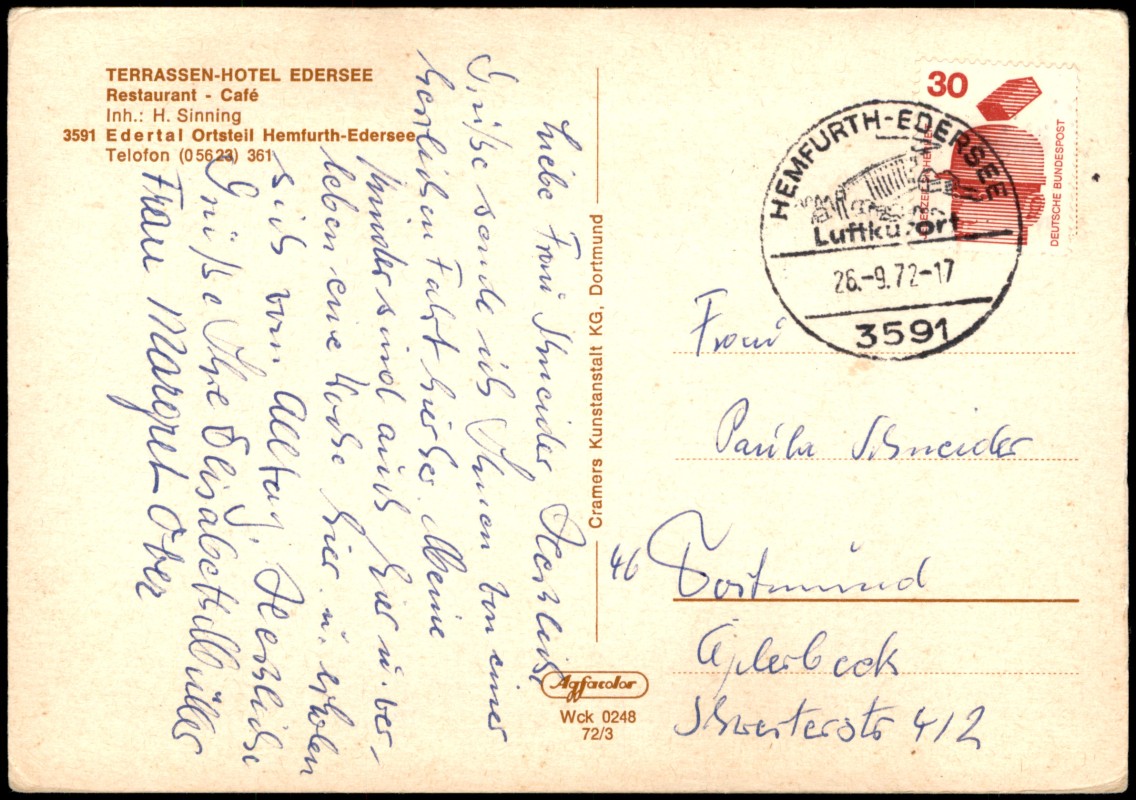 TERRASSEN-HOTEL EDERSEE
Restaurant - Café
Inh.: H. Sinning
3591 Edertal Ortsteil Hemfurth-Edersee
Telofon (05623) 361
Liebe Frau Schneider, Herzliche
Grüße sende ich Ihnen von einer
herrlichen Fahrt hierher. Meine
Kinder sind auch hier u. ver-
leben eine Woche hier u. erholen
sich vom Alltag. Herzliche
Grüße Ihre Elisabeth Müller
Frau Margret Ober
Cramers Kunstanstalt KG, Dortmund
Agfacolor
Wck 0248
72/3
30
DEUTSCHE BUNDESPOST
HEMFURTH-EDERSEE
Luftkurort
26.-9.72-17
3591
Frau
Paula Schneider
46 Dortmund
Aplerbeck
Schwerterstr 412